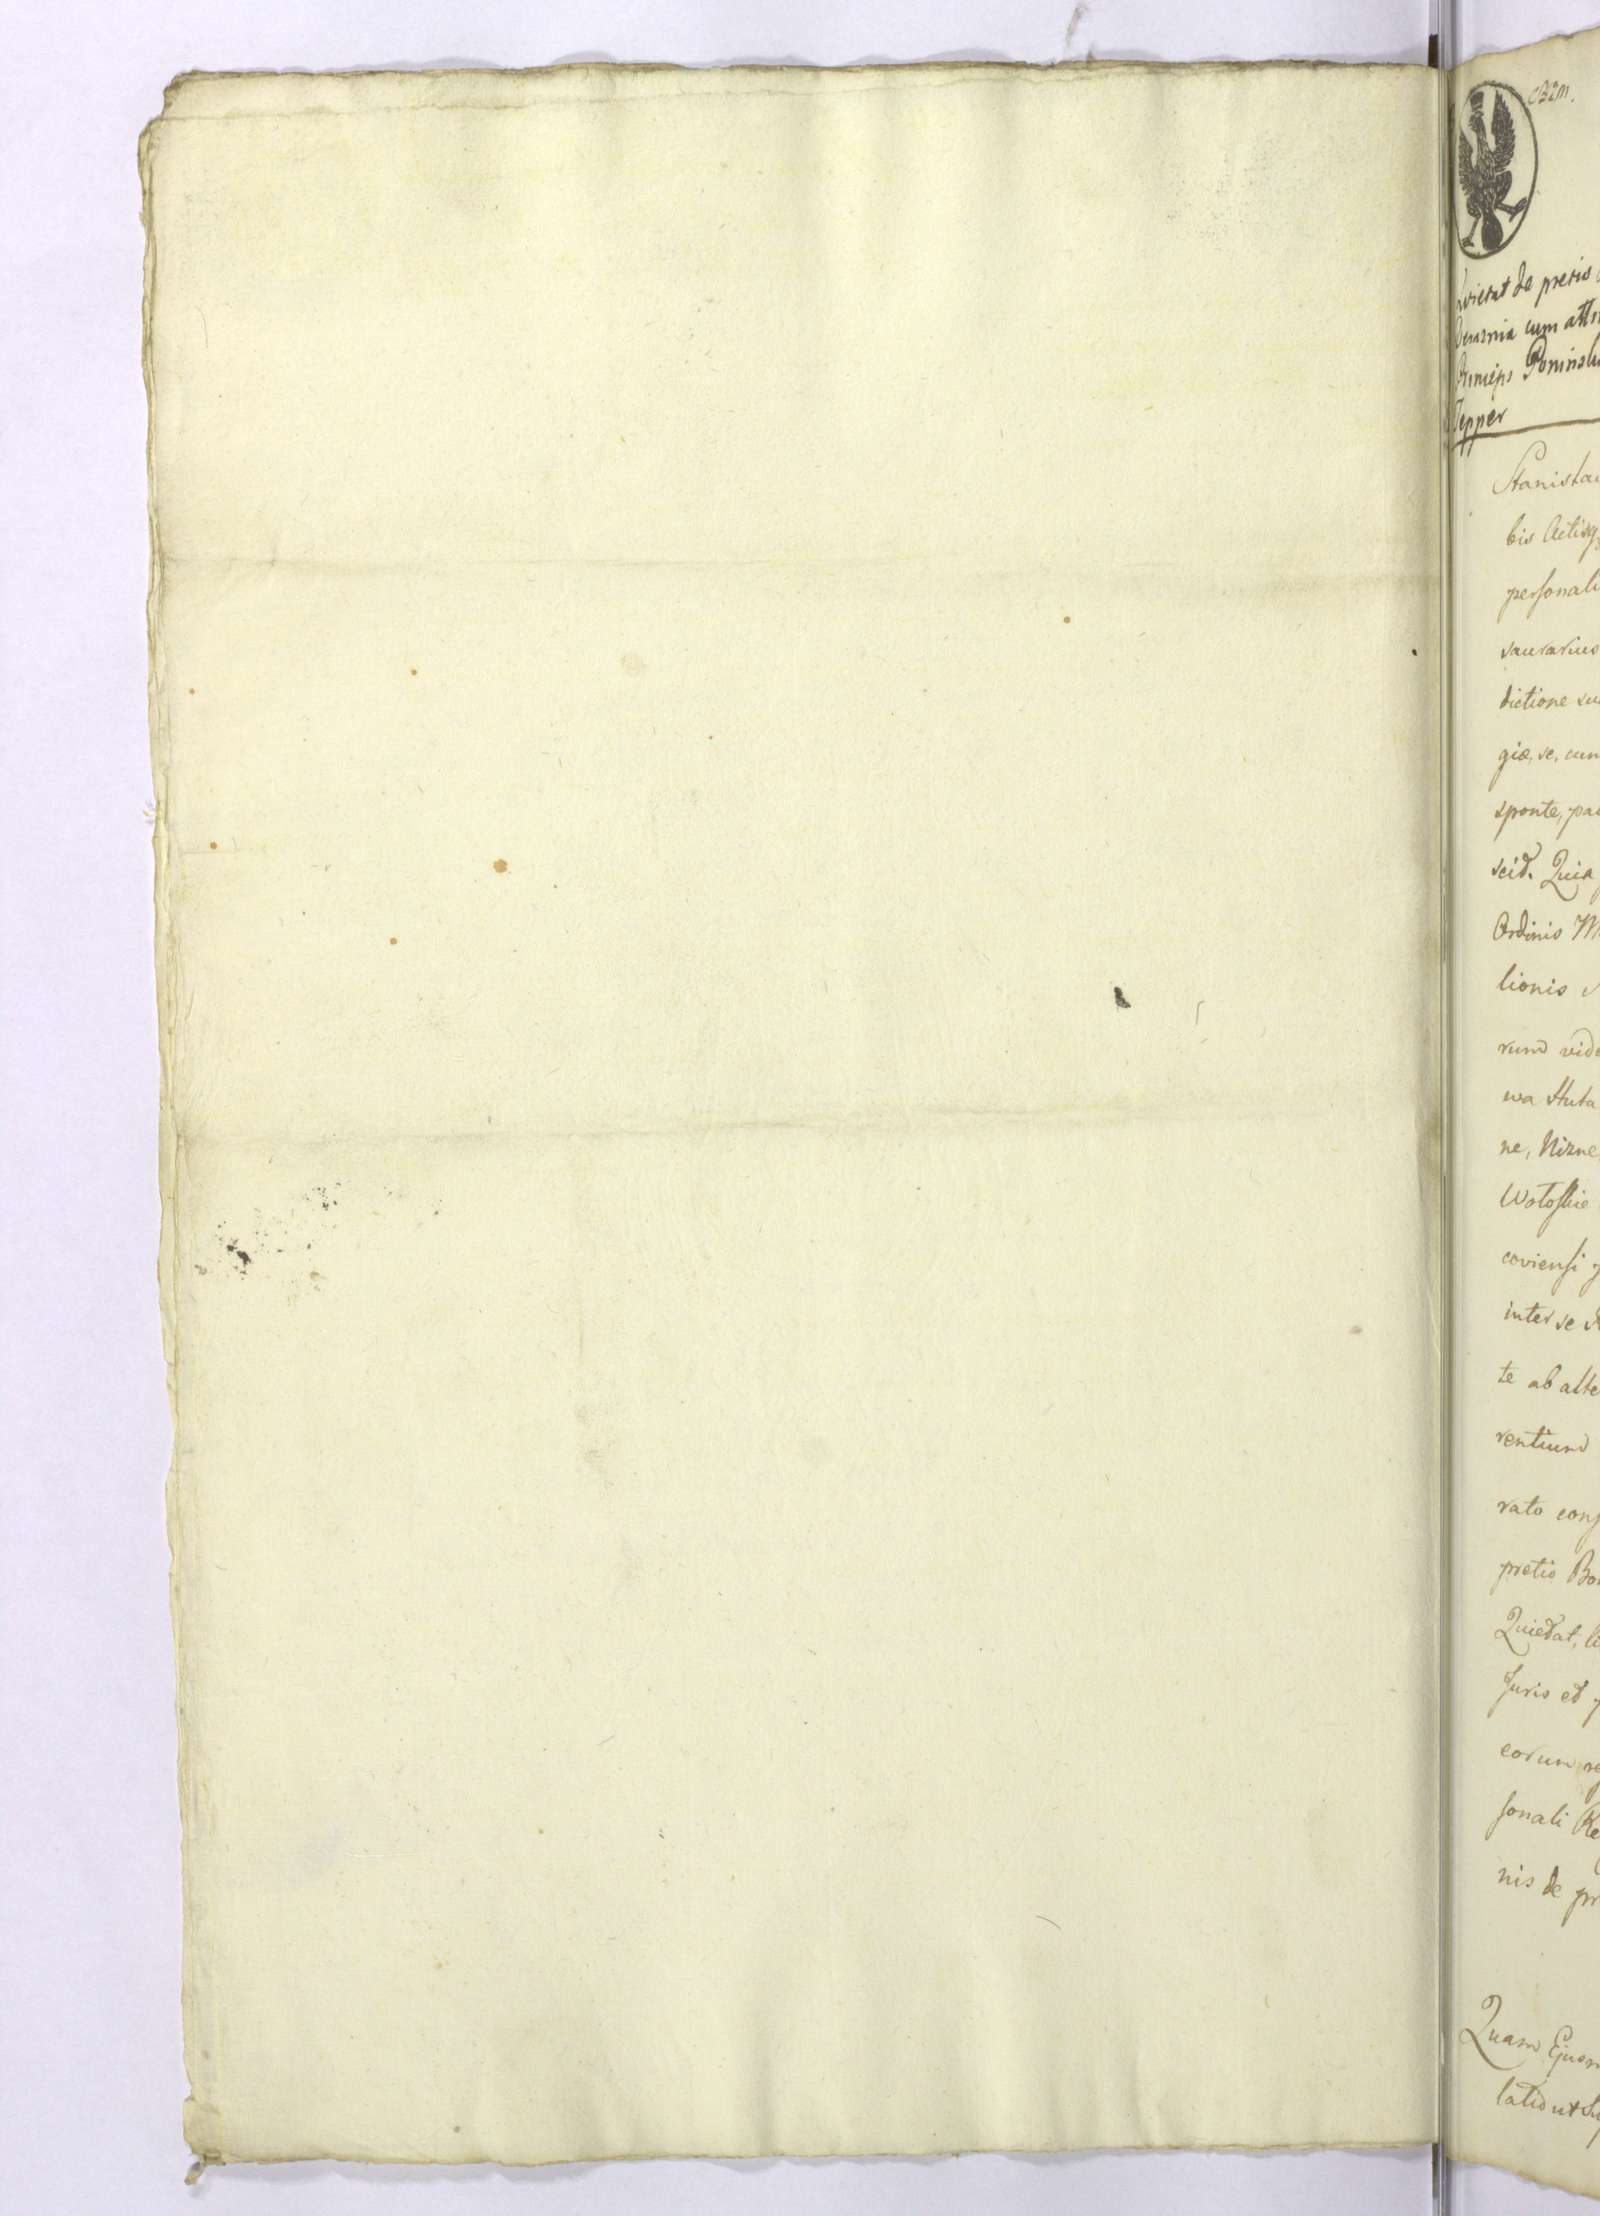 de pretio
cum att
Princeps Poninsk
Tepper
Stanislau
bis Actisq
personali
saurarius
dictione su
giæ, se, cum
sponte, pa
scid. Quia
Ordinis M
lionis
rum vide
wa Huta
ne, Nizne
Wołoskie
coviensi
inter se
te ab alte
rentium
rato conf
pretio Bo
Quietat, li
Juris et p
eorum re
sonali Re
nis de pr
Quam Ejusm
latio ut Su